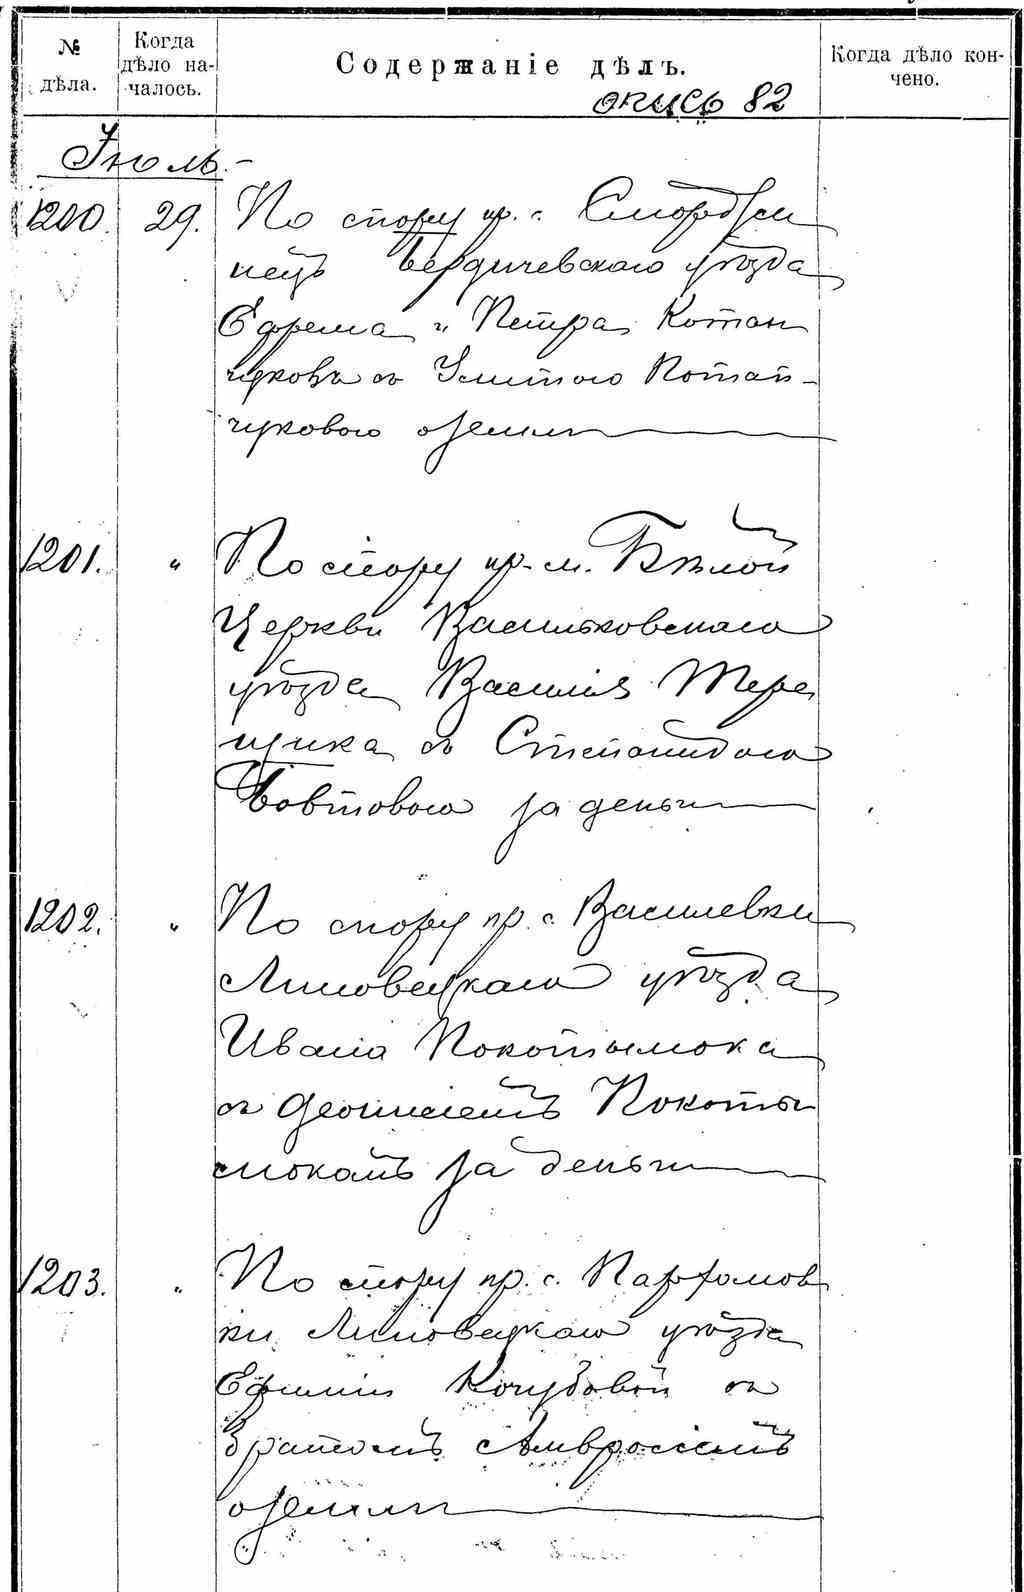 № дѣла.
Когда дѣло на-
чалось.
Содержаніе дѣлъ.
Когда дѣло кон-
чено.
опись 82
Іюль.-
1200. 29. По спору кр. с.
нецъ Бердичевскаго уѣзда
Ефрема и Петра Котан
чуковъ съ Улитою Потап-
чуковою о землѣ
1201. " По спору кр. м. Бѣлой
Церкви Васильковскаго
уѣзда Василія Тере
щука съ Степанидою
Бовтовою за деньги
1202. " По спору кр. с. Василевки
Липовецкаго уѣзда
Ивана Покотылюка
съ Деонисіемъ Покоты
люкомъ за деньги
1203. " По спору кр. с. Парфомов
ки Липовецкаго уѣзда
Ефиміи Кочубовой съ
братомъ Амвросіемъ
о землѣ